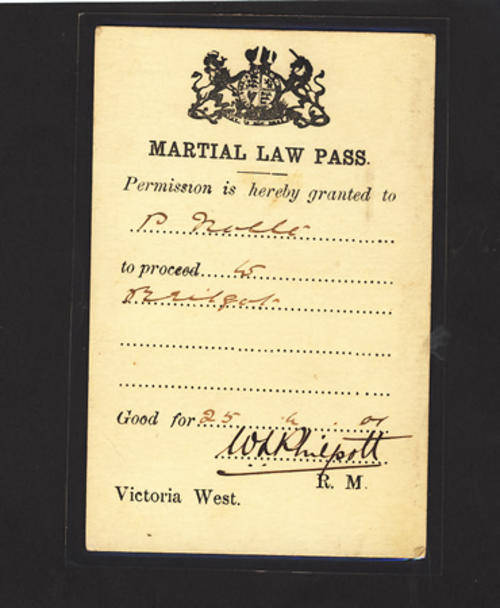 MARTIAL LAW PASS.
Permission is hereby granted to
P Nolte
to proceed to
Good for 25 4 01
W L Philpott
R. M.
Victoria West.